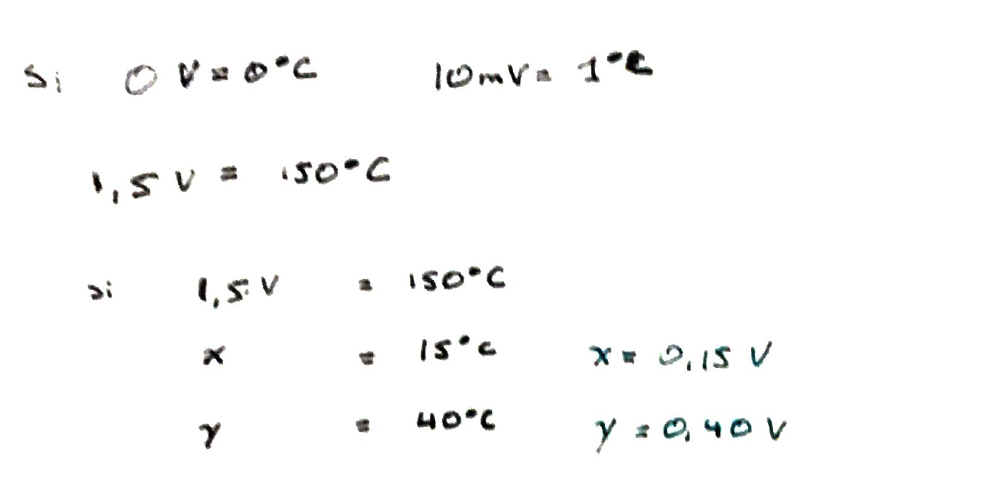 Si 0 V = 0°C 10mV = 1°C
1,5 V = 150°C
si 1,5 V = 150°C
x = 15°C x = 0,15 V
y = 40°C y = 0,40 V